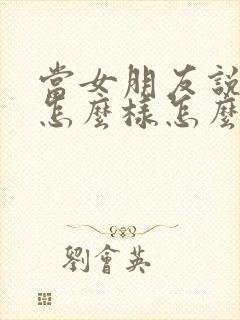 當女朋友說
怎麼樣怎麼
劉會英